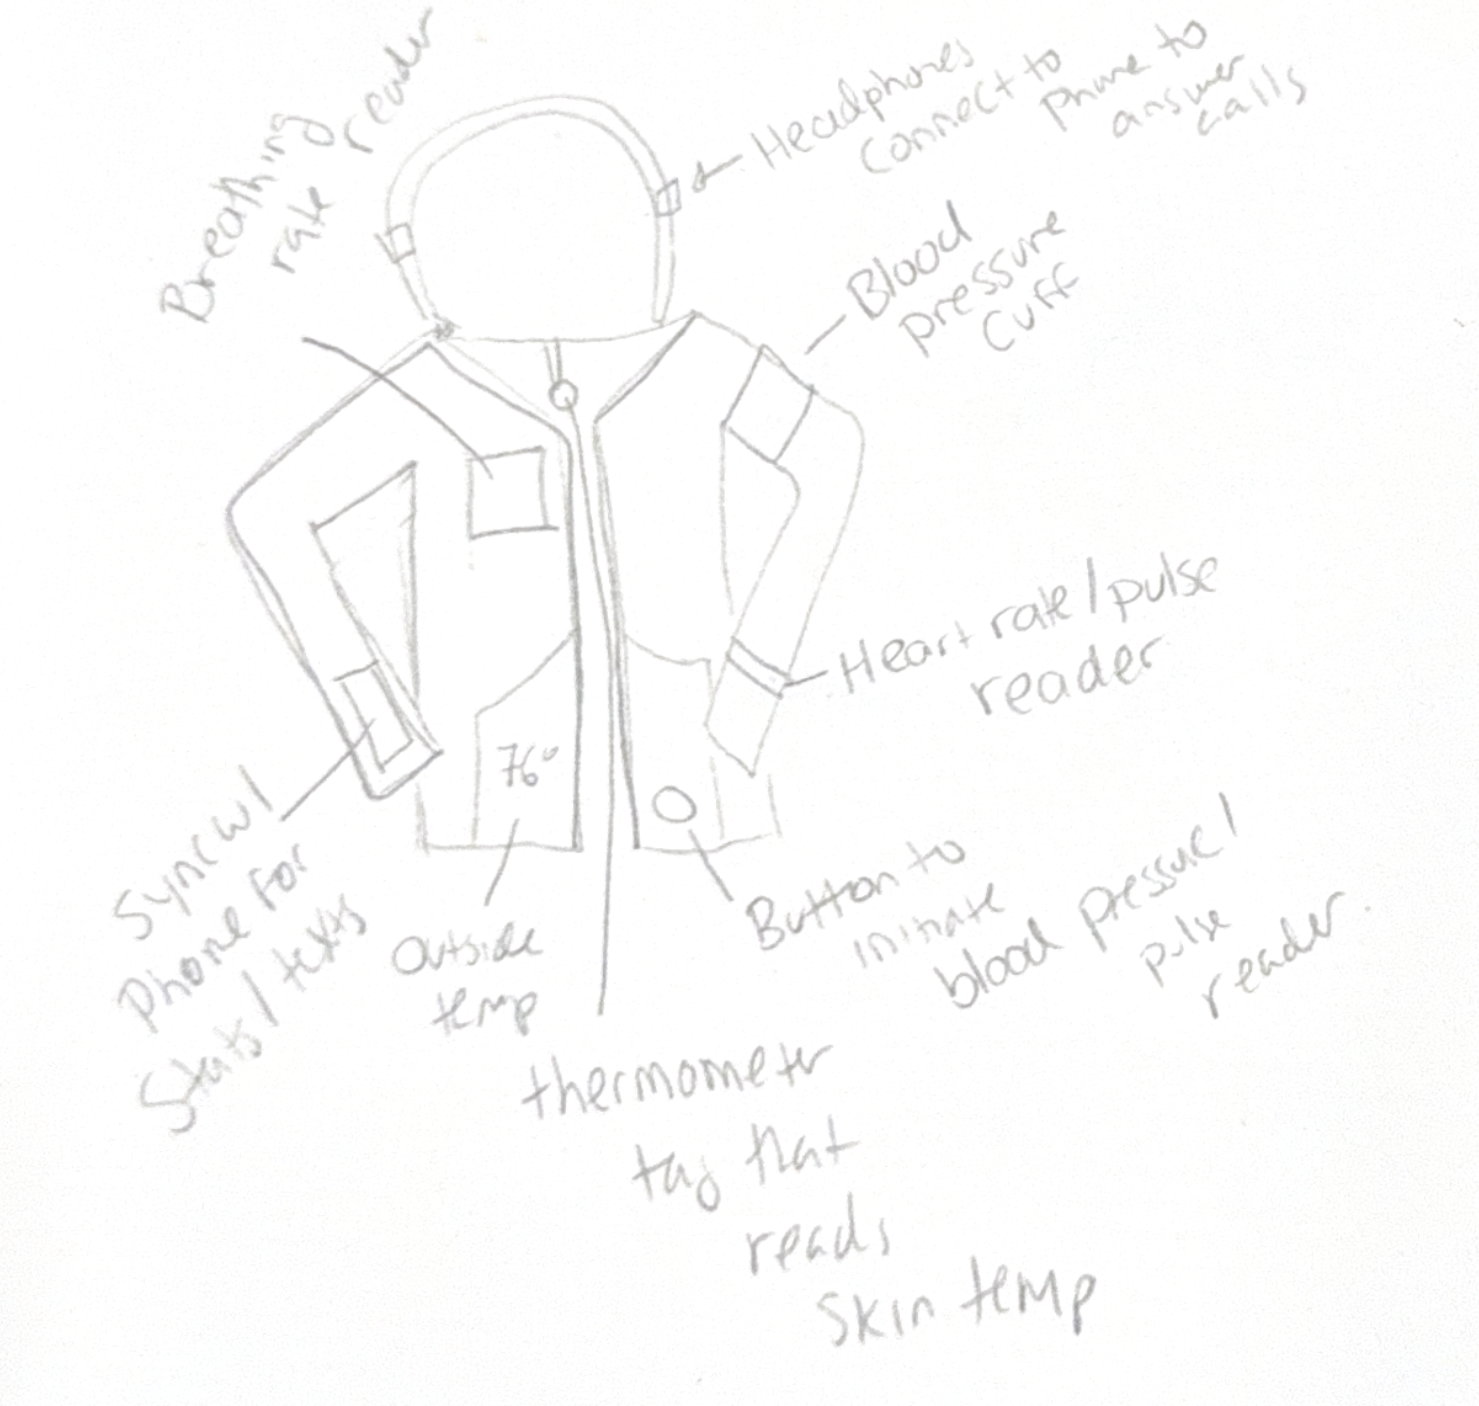 Breathing
rate reader
Headphones
connect to
phone to
answer
calls
Blood
pressure
cuff
Heart rate/pulse
reader
76°
Sync w/
phone for
stats/texts
outside
temp
Button to
initiate
blood pressure/
pulse
reader.
thermometer
tag that
reads
skin temp